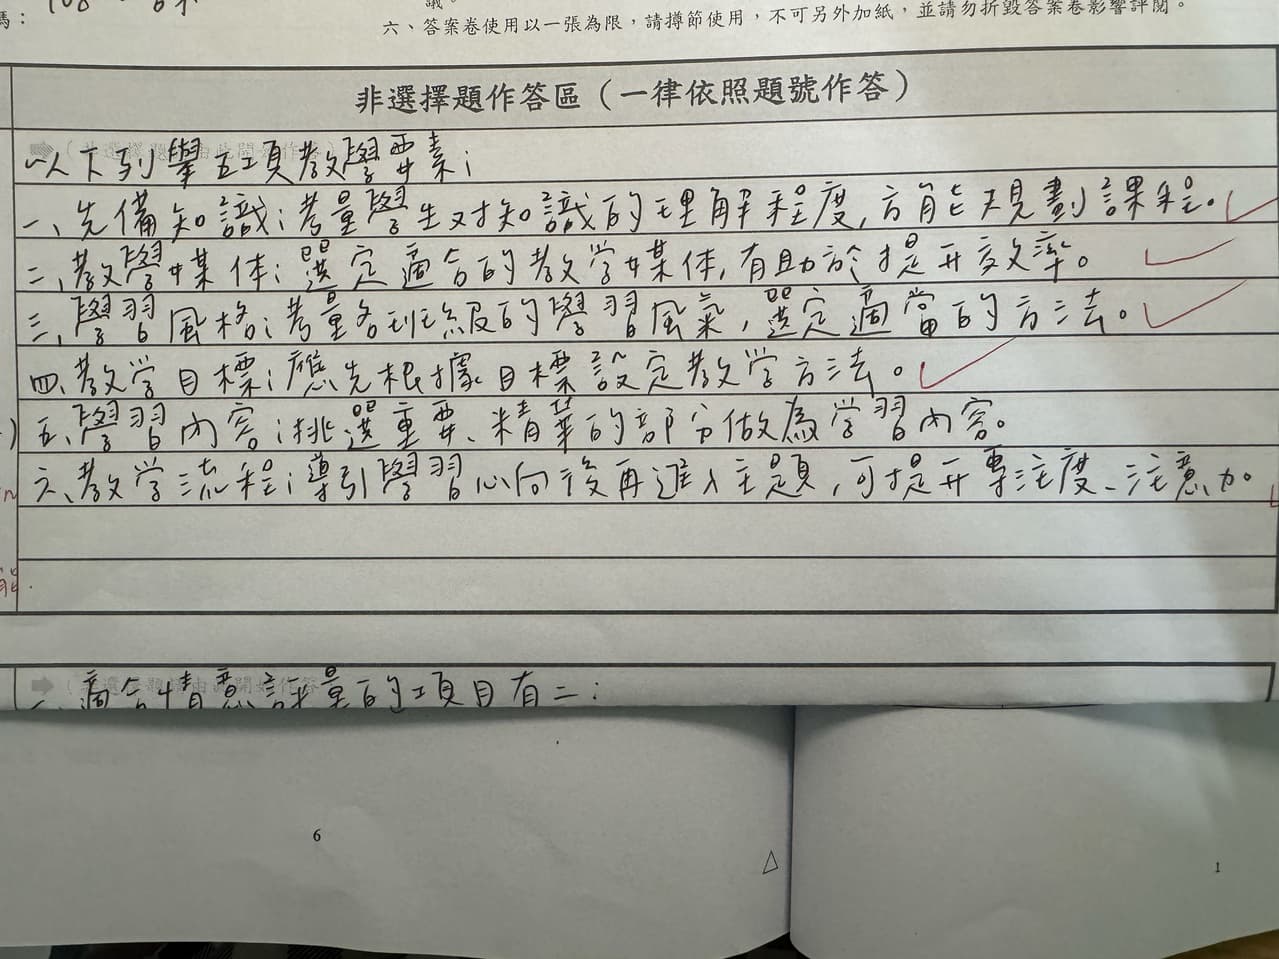 碼：
議。
六、答案卷使用以一張為限，請撙節使用，不可另外加紙，並請勿折毀答案卷影響評閱。
非選擇題作答區（一律依照題號作答）
以下列舉五項教學要素：
一、先備知識：考量學生对知識的理解程度，方能规劃課程。
二、教學媒体：選定適合的教学媒体，有助於提升效率。
三、學習風格：考量各班級的學習風氣，選定適當的方法。
四、教学目標：應先根據目標設定教学方法。
五、學習內容：挑選重要、精華的部分做為学習內容。
六、教学流程：導引學習心向後再進入主題，可提升專注度、注意力。
能.
一、適合情意評量的項目有二：
6
1